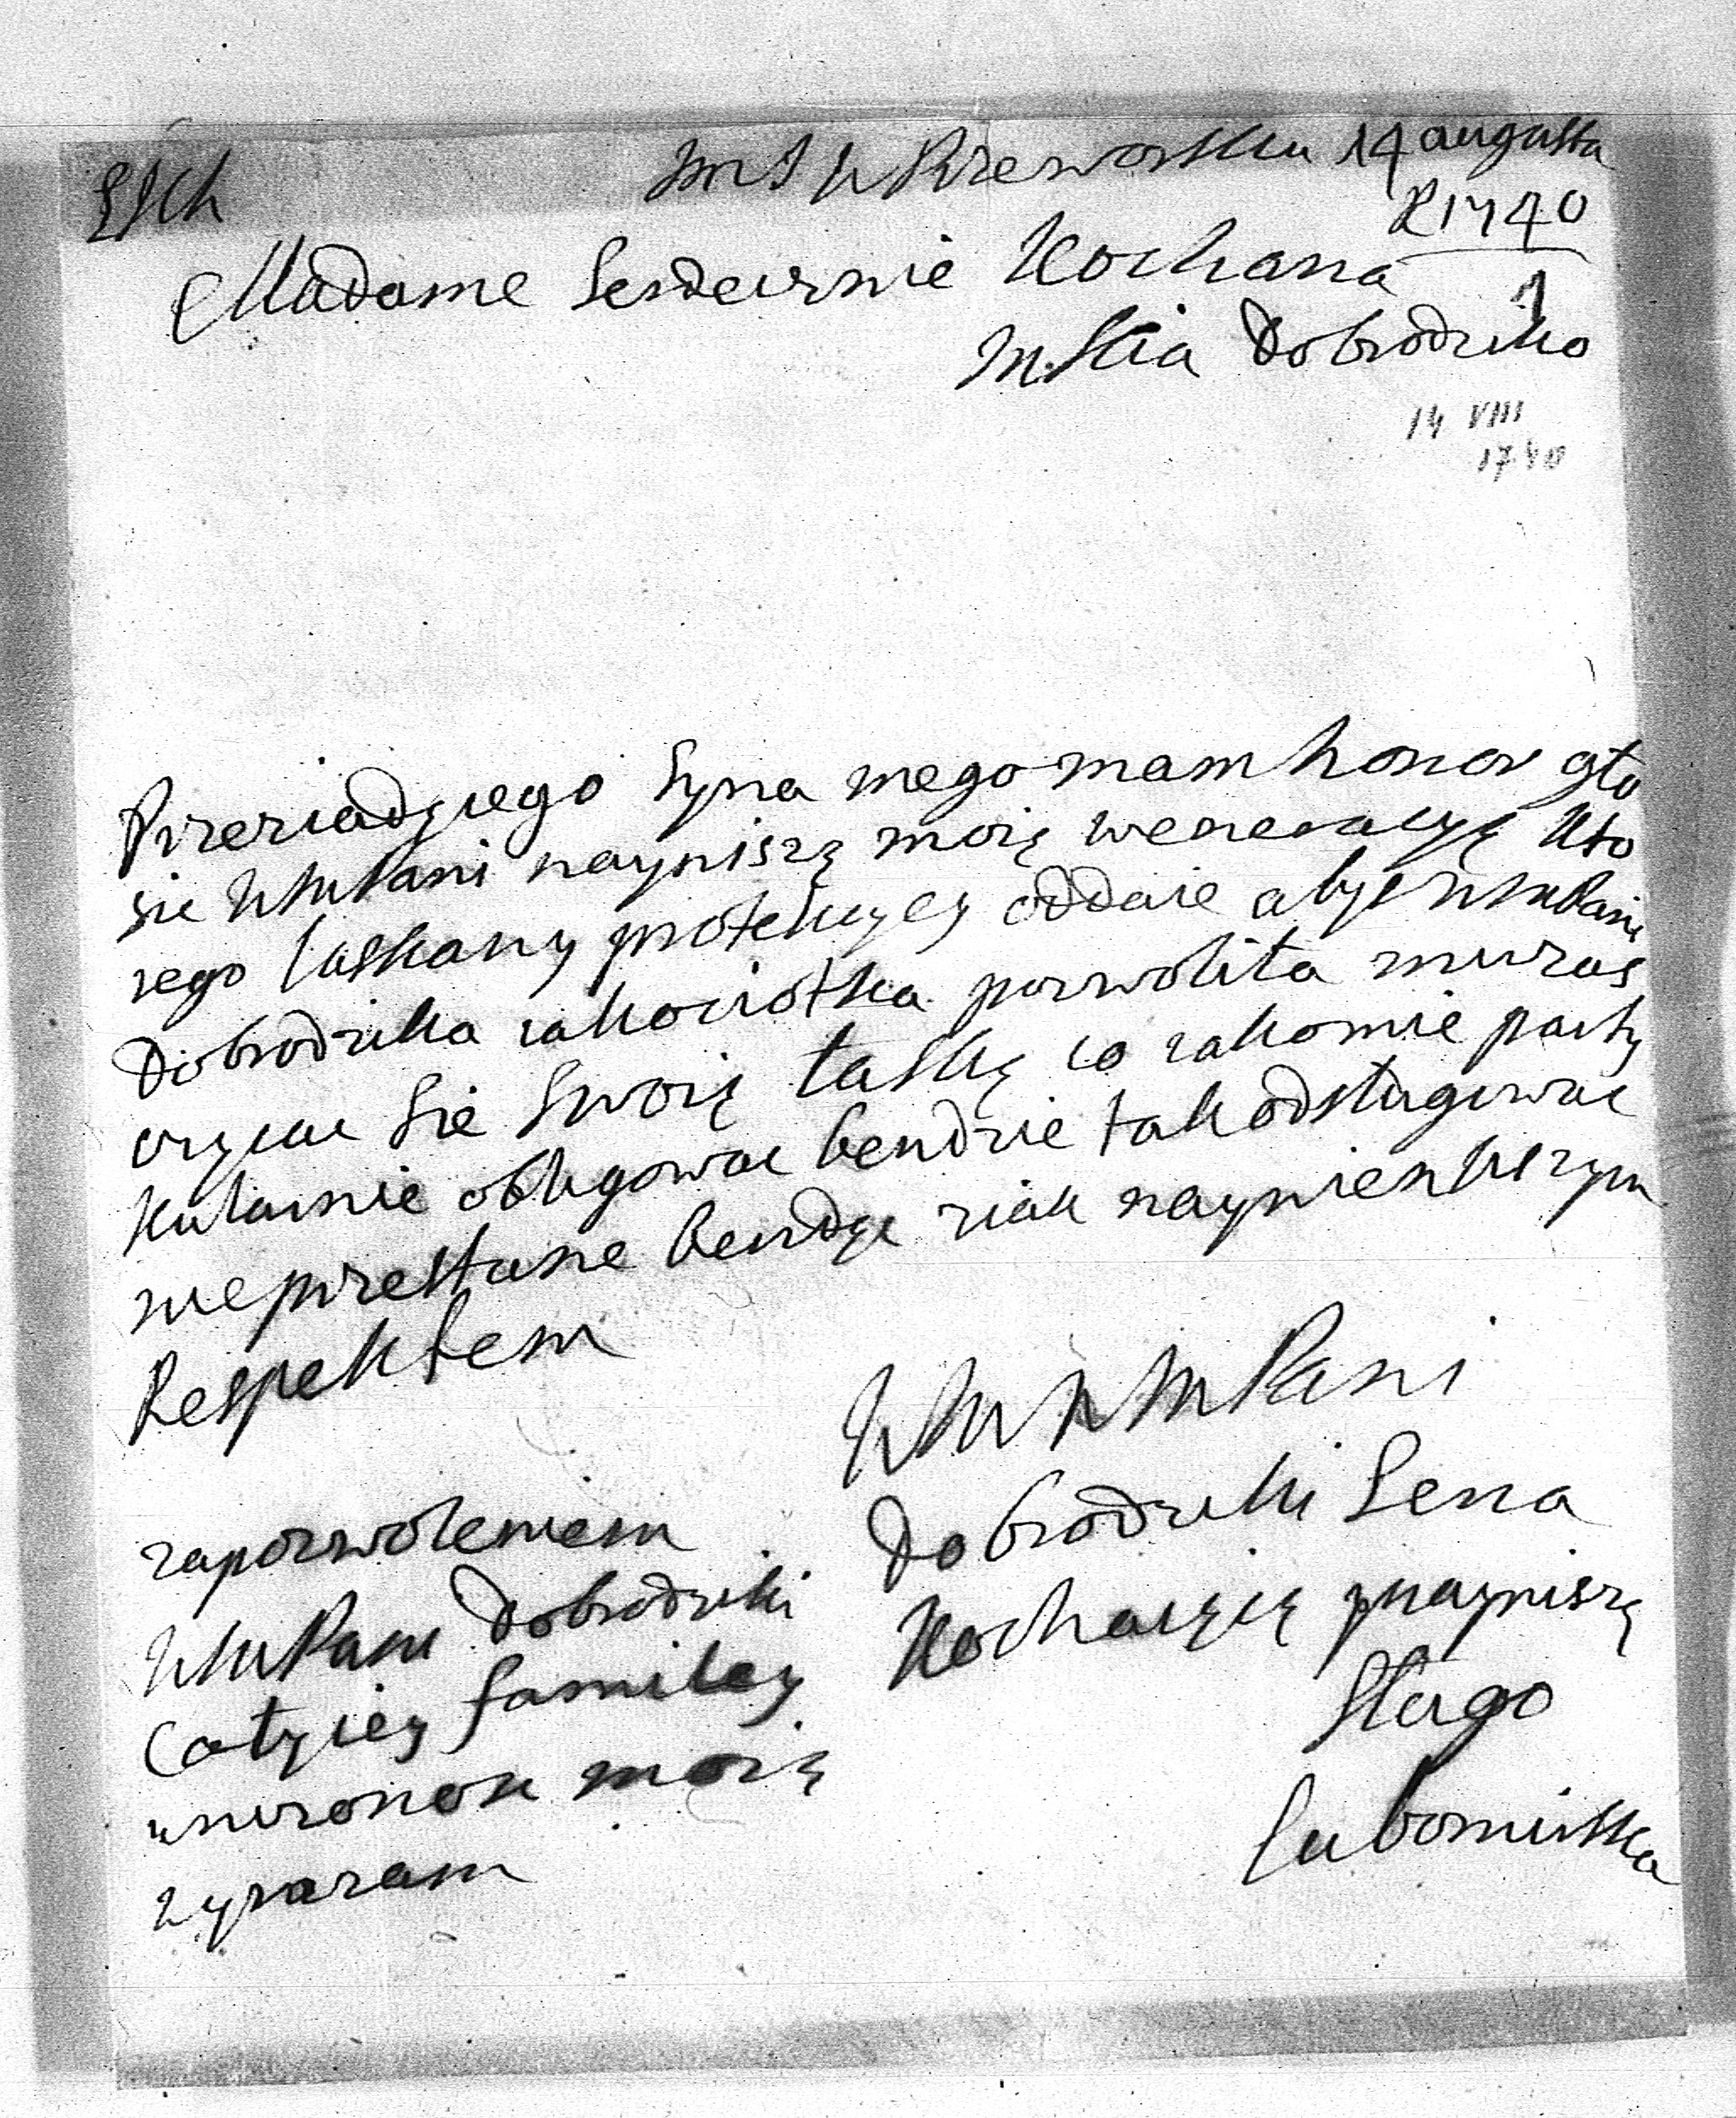 w Przeworsku 14 augusta
R 1740
Madame Serdecznie Kochana
1
M. Scia Dobrodziko
14 VIII
1740
Przeziadzcego Syna mego mam honor gło
sic WMPani nayniszą moię weneracyę kto
rego laskawy protekcyey oddaie abys WMPani
Dobrodzika iako ciotka pozwoliła mu zas
czycac sie swoię łaskę co iako mie party
kularnie obligowac bendzie tak odsługiwac
nieprzestane bendąc ziak naywienkszym
Respektem
WMWMPani
Dobrodziki Serca
Kochaiącą ynayniszą
Slugo
Lubomirska
zapozwoleniem
WMPani Dobrodziki
Całyiey familey
moię
wyrazam